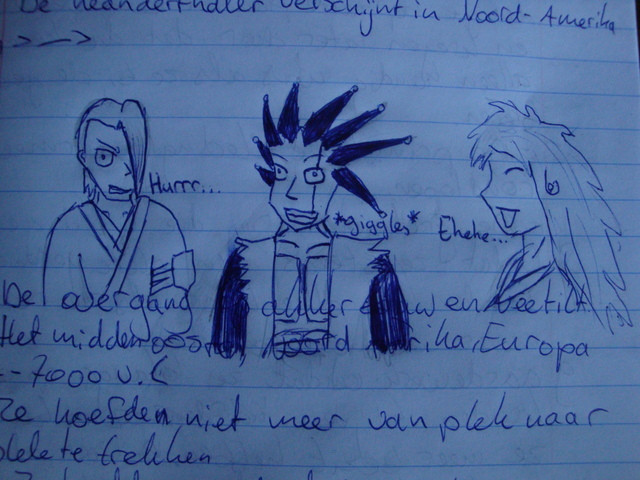 De neanderthaler verschijnt in Noord-Amerika
Hurrr...
*giggles*
Ehehe...
De overgang akkerbouw en veeteelt
Het midden oosten, Noord Afrika, Europa
-7000 v.C
Ze hoefden niet meer van plek naar
plek te trekken